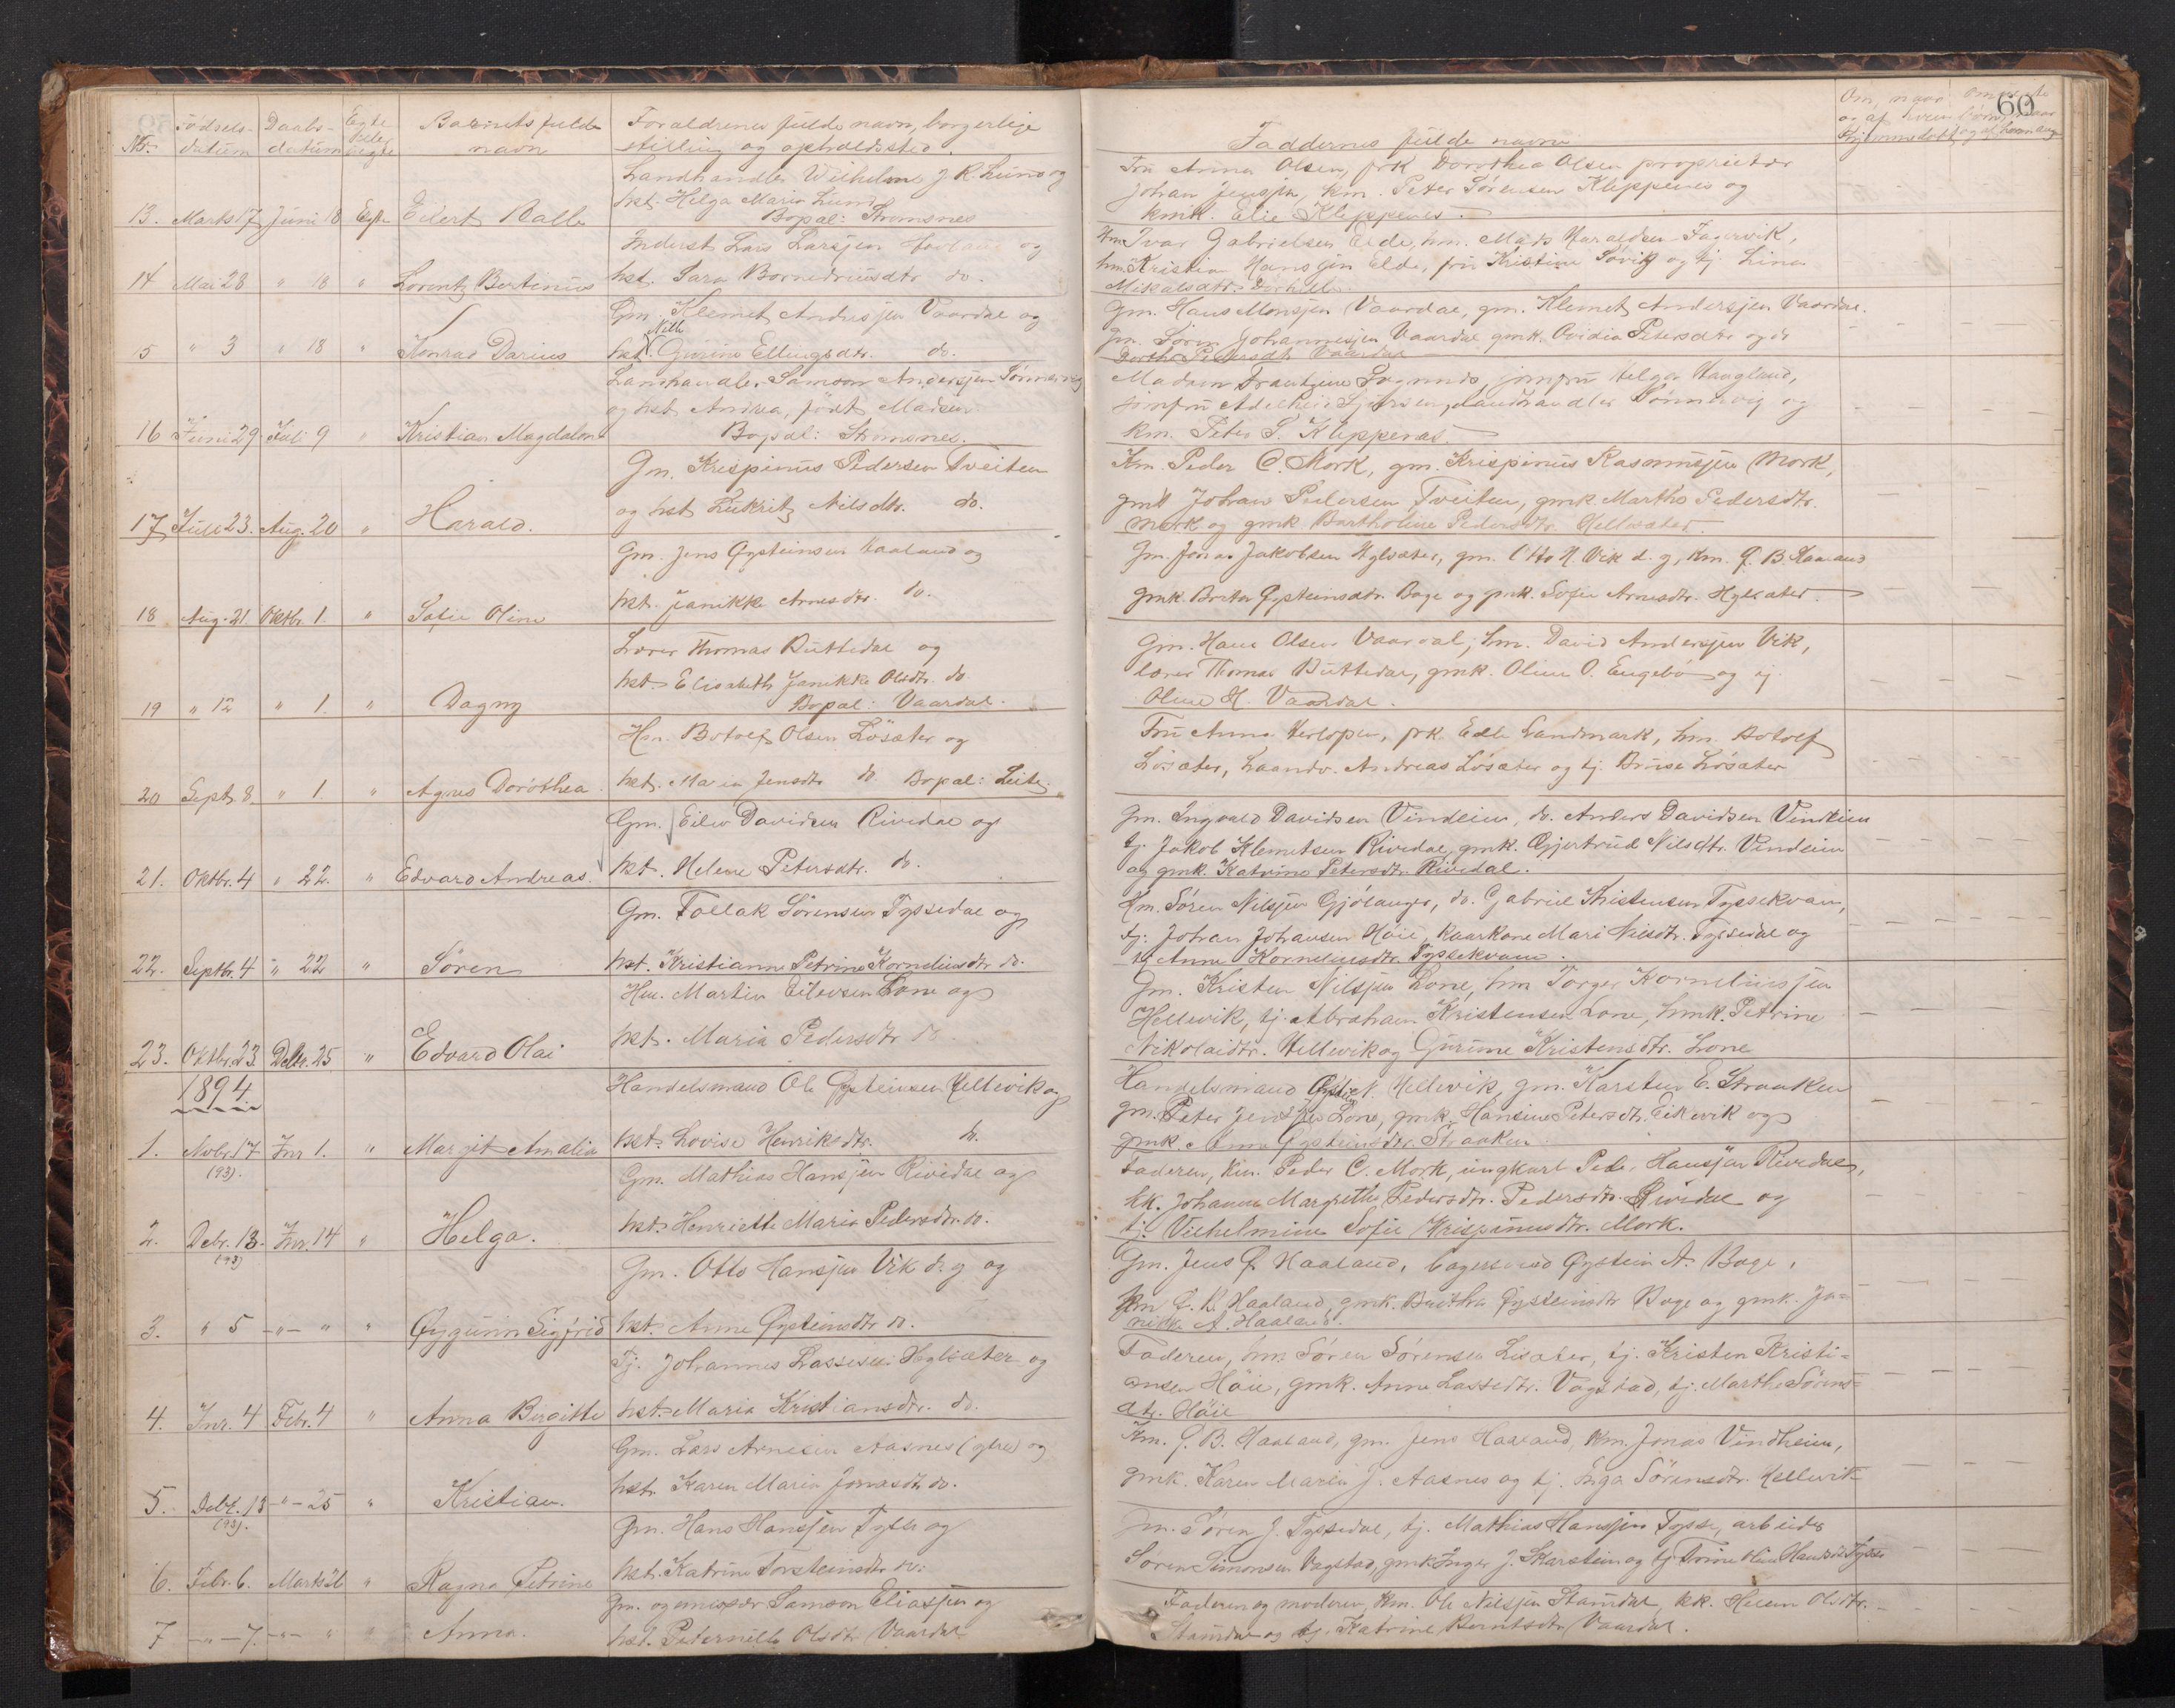 60
No. Fødsels-datum Daabs-datum Egte eller uegte Barnets fulde navn Forældrenes fulde navn, borgerlige stilling og opholdssted.
Faddernes fulde navne
13. Marts 17 Juni 18 Egte Eilert Balle
Landhandler Wilhelm J. R. Lund og
hst. Helga Maria Lund
Bopæl: Strømsnes
Fru Anna Olsen, frk Dorothea Olsen proprietær
Johan Jensen, km. Peter Sørensen Kleppenes og
kmk. Elie Kleppenes.
14 Mai 28 " 18 " Lorentz Bertinus
Inderst Lars Larsjen og
hst. Sara do.
Hm Ivar Gabrielsen Elde, hm. Mads Haraldsen Fagervik,
hm Kristian Hansjen Elde, fru Kristine Søvig og tj. Lina
Mikalsdtr.
15 " 3 " 18 " Konrad Darius
Gm. Klemet Andersjen Vaardal og
hst. Gurine Ellingsdtr. do.
Gm. Hans Monsjen Vaardal, gm. Klemet Andersjen Vaardal.
Gm. Søren Johannesjen Vaardal gmk. Ovidia Petersdtr og do
Dorthe Pedersdtr Vaardal
16 Juni 29. Juli 9 " Kristian Magdalon
Lanhandler Samson Andersjen Tønnevig
og hst. Andrea, født Madsen
Bopæl: Strømsnes.
Madam Frantzine jomfru Helga Haugland,
jomfru Adelheid landhandler Tønnevig og
km. Peter S. Kleppenes.
17 Juli 23. Aug. 20 " Harald.
Gm. Krispinus Pedersen Tveiten
og hst Lukritz Nilsdtr. do.
Km. Peder C. Mork, gm. Krispinus Rasmusjen Mork,
gm Johan Pedersen Tveiten, gmk. Marthe Pedersdtr.
Mork og gmk Bartholine Pedersdtr. Hellesæter
18 Aug. 21. Oktbr. 1. " Sofie Oline
Gm. Jens Øysteinsen Haaland og
hst. Janikke Arnesdtr. do.
Gm. Jonas Jakobsen Hylsæter, gm. Otto H. Vik d. y, km. Ø. B. Haaland
gmk. Brita Øysteinsdtr. Bøge og gmk. Sofie Arnesdtr. Hylsæter.
19 " 12 " 1. " Dagny
Lærer Thomas Buttedal og
hst. Elisabeth Janikke Olsdtr. do.
Bopæl: Vaardal.
Gm. Hans Olsen Vaardal, hm. David Andersjen Vik,
lærer Thomas Buttedal, gmk. Oline O. Engebø og tj.
Oline H. Vaardal.
20 Septr. 8. " 1. " Agnes Dorothea.
Hm. Botolf Olsen Løsæter og
hst. Maria Jensdtr do Bopæl: Leite.
Fru Anna Herlopen, frk Edle Landmark, hm. Botolf
Løsæter, Andreas Løsæter og tj. Brúse Løsæter
21. Oktbr. 4 " 22. " Edvard Andreas.
Gm. Eilev Davidsen Rivedal og
hst. Helene Petersdtr. do.
Gm. Ingvald Davidsen Vindeim, do. Anders Davidsen Vindeim
Tj. Jakob Klemetsen Rivedal, gmk. Gjertrud Nilsdtr. Vindeim
og gmk. Katrine Petersdtr. Rivedal.
22. Septbr. 4 " 22 " Søren
Gm. Tollak Sørensen Tyssedal og
hst. Kristianne Petrine Korneliusdtr do.
Km. Søren Nilsjen Gjølanger, do. Gabriel Kristensen Tyssekvam,
tj: Johan Johansen Høie, kaarkone Mari Nilsdtr. Tyssedal og
tj Anne Korneliusdtr. Tyssekvam.
23. Oktbr. 23. Debr. 25 " Edvard Olai
Hm. Martin Eilevsen Lone og
hst. Maria Pedersdtr do
Gm. Kristen Nilsjen Lone, hm Torger Korneliusjen
Hellevik, tj. Abraham Kristensen Lone, hmk. Petrine
Nikolaidtr. Hellevik og Gurine Kristensdtr. Lone
1894
1. Novbr. 17 (93). Jnr 1. " Margit Amalia
Handelsmand Ole Øysteinsen Hellevik og
hst. Lovise Henriksdtr. do.
Handelsmand Øystein Hellevik, gm. Karsten E. Straaken
gm. Peter Jensjen Lone, gmk. Hansine Petersdtr. Eikevik og
gmk. Anna Øysteinsdtr. Straaken.
2. Debr. 13. (93) Jnr. 14 " Helga.
Gm. Mathias Hansjen Rivedal og
hst. Henriette Maria Pedersdtr. do.
Faderen, km. Peder C. Mork, ungkarl Peder Hansjen Rivedal,
kk. Johanne Margrethe Pedersdtr. Pedersdtr. Rivedal og
tj. Vilhelmine Sofie Krispinusdtr. Mork.
3. " 5 -"- " " Øygunn Sigfrid
Gm. Otto Hansjen Vik d. y og
hst. Anne Øysteinsdtr do.
Gm. Jens Ø. Haaland, Øystein A. Bøge,
km Ø. B. Haaland, gmk. Brithe Øysteinsdtr Bøge og gmk. Ja-
nikke A. Haaland.
4. Jnr. 4 Febr. 4 " Anna Birgitte
Tj. Johannes Lassesen Hylsæter og
hst. Maria Kristiansdtr. do.
Faderen, hm. Søren Sørensen Lisæter, tj. Kristen Kristi-
ansen Høie, gmk. Anne Lassedtr. Vagstad, tj. Marthe Sørens-
dtr. Høie
5. Debr. 13 (93). -"- 25 " Kristian.
Gm. Lars Arnesen Aasnes (ytre) og
hst. Karen Maria Jonasdtr. do.
Km. Ø. B. Haaland, gm. Jens Haaland, km. Jonas Vindheim,
gmk. Karen Maria J. Aasnes og tj. Inga Sørensdtr. Hellevik
6. Febr. 6. Marts 26 " Ragna Petrine
Gm. Hans Hansjen Tysse og
hst. Katrine Torsteinsdtr do.
Gm. Søren J. Tyssedal, tj. Mathias Hansjen Tysse, arbeider
Søren Simonsen Vagstad, gmk. Inger J. Skarstein og tj Trine Oline Hansdtr Tysse
7 -"- 7. -"- " " Anna.
Gm. og Samson Eliasjen og
hst. Pedernille Olsdtr Vaardal
Faderen og moderen, km. Ole Nilsjen Stamdal, kk. Helene Olsdtr.
Stamdal og tj. Katrine Berntsdtr. Vaardal.